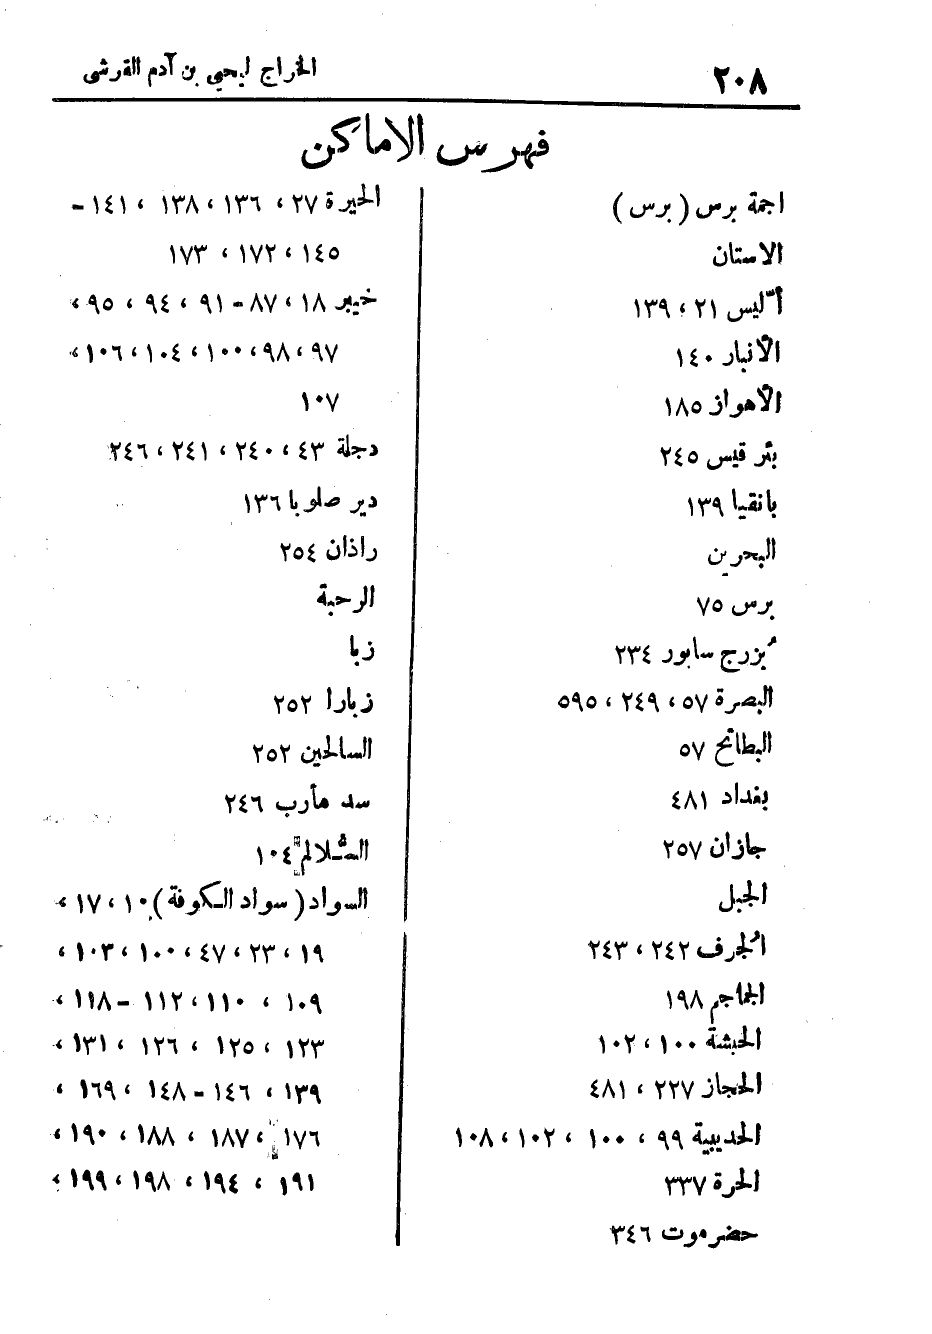 ٢٠٨
الخراج ليحيى بن آدم القرشى
فهرس الاماكن
اجمة برس (برس)
الاستان
أُلّيس ٢١ ، ١٣٩
الأنبار ١٤٠
الأهواز ١٨٥
بئر قيس ٢٤٥
بانقيا ١٣٩
البحرين
برس ٧٥
بُزرج سابور ٢٣٤
البصرة ٥٧ ، ٢٤٩ ، ٥٩٥
البطائح ٥٧
بغداد ٤٨١
جازان ٢٥٧
الجبل
الجُرف ٢٤٢ ، ٢٤٣
الجماجم ١٩٨
الحبشة ١٠٠ ، ١٠٢
الحجاز ٢٢٧ ، ٤٨١
الحديبية ٩٩ ، ١٠٠ ، ١٠٢ ، ١٠٨
الحرة ٣٣٧
حضرموت ٣٤٦
الحيرة ٢٧ ، ١٣٦ ، ١٣٨ ، ١٤١ -
١٤٥ ، ١٧٢ ، ١٧٣
خيبر ١٨ ، ٨٧ - ٩١ ، ٩٤ ، ٩٥ ،
٩٧ ، ٩٨ ، ١٠٠ ، ١٠٤ ، ١٠٦ ،
١٠٧
دجلة ٤٣ ، ٢٤٠ ، ٢٤١ ، ٢٤٦
دير صلوبا ١٣٦
راذان ٢٥٤
الرحبة
زبا
زبارا ٢٥٢
السالحين ٢٥٢
سد مأرب ٢٤٦
السُّلالم ١٠٤
السواد (سواد الكوفة) ١٠ ، ١٧ ،
١٩ ، ٢٣ ، ٤٧ ، ١٠٠ ، ١٠٣ ،
١٠٩ ، ١١٠ ، ١١٢ - ١١٨ ،
١٢٣ ، ١٢٥ ، ١٢٦ ، ١٣١ ،
١٣٩ ، ١٤٦ - ١٤٨ ، ١٦٩ ،
١٧٦ ، ١٨٧ ، ١٨٨ ، ١٩٠ ،
١٩١ ، ١٩٤ ، ١٩٨ ، ١٩٩ ،